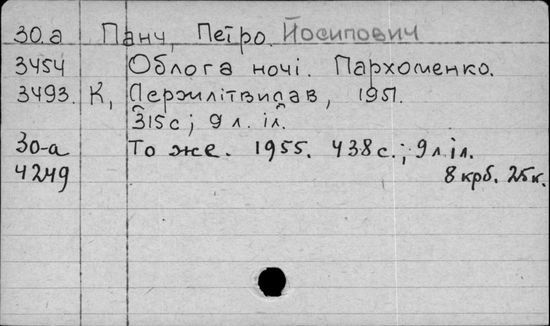 30.а Панч, Петро. Йосипович
3454 Облога ночі. Пархоменко.
3493. К, Держлітвидав, 1951.
315с; 9 л. іл.
30-а То же. 1955. 438с.; 9 л іл.
4249 8 крб. 25к.